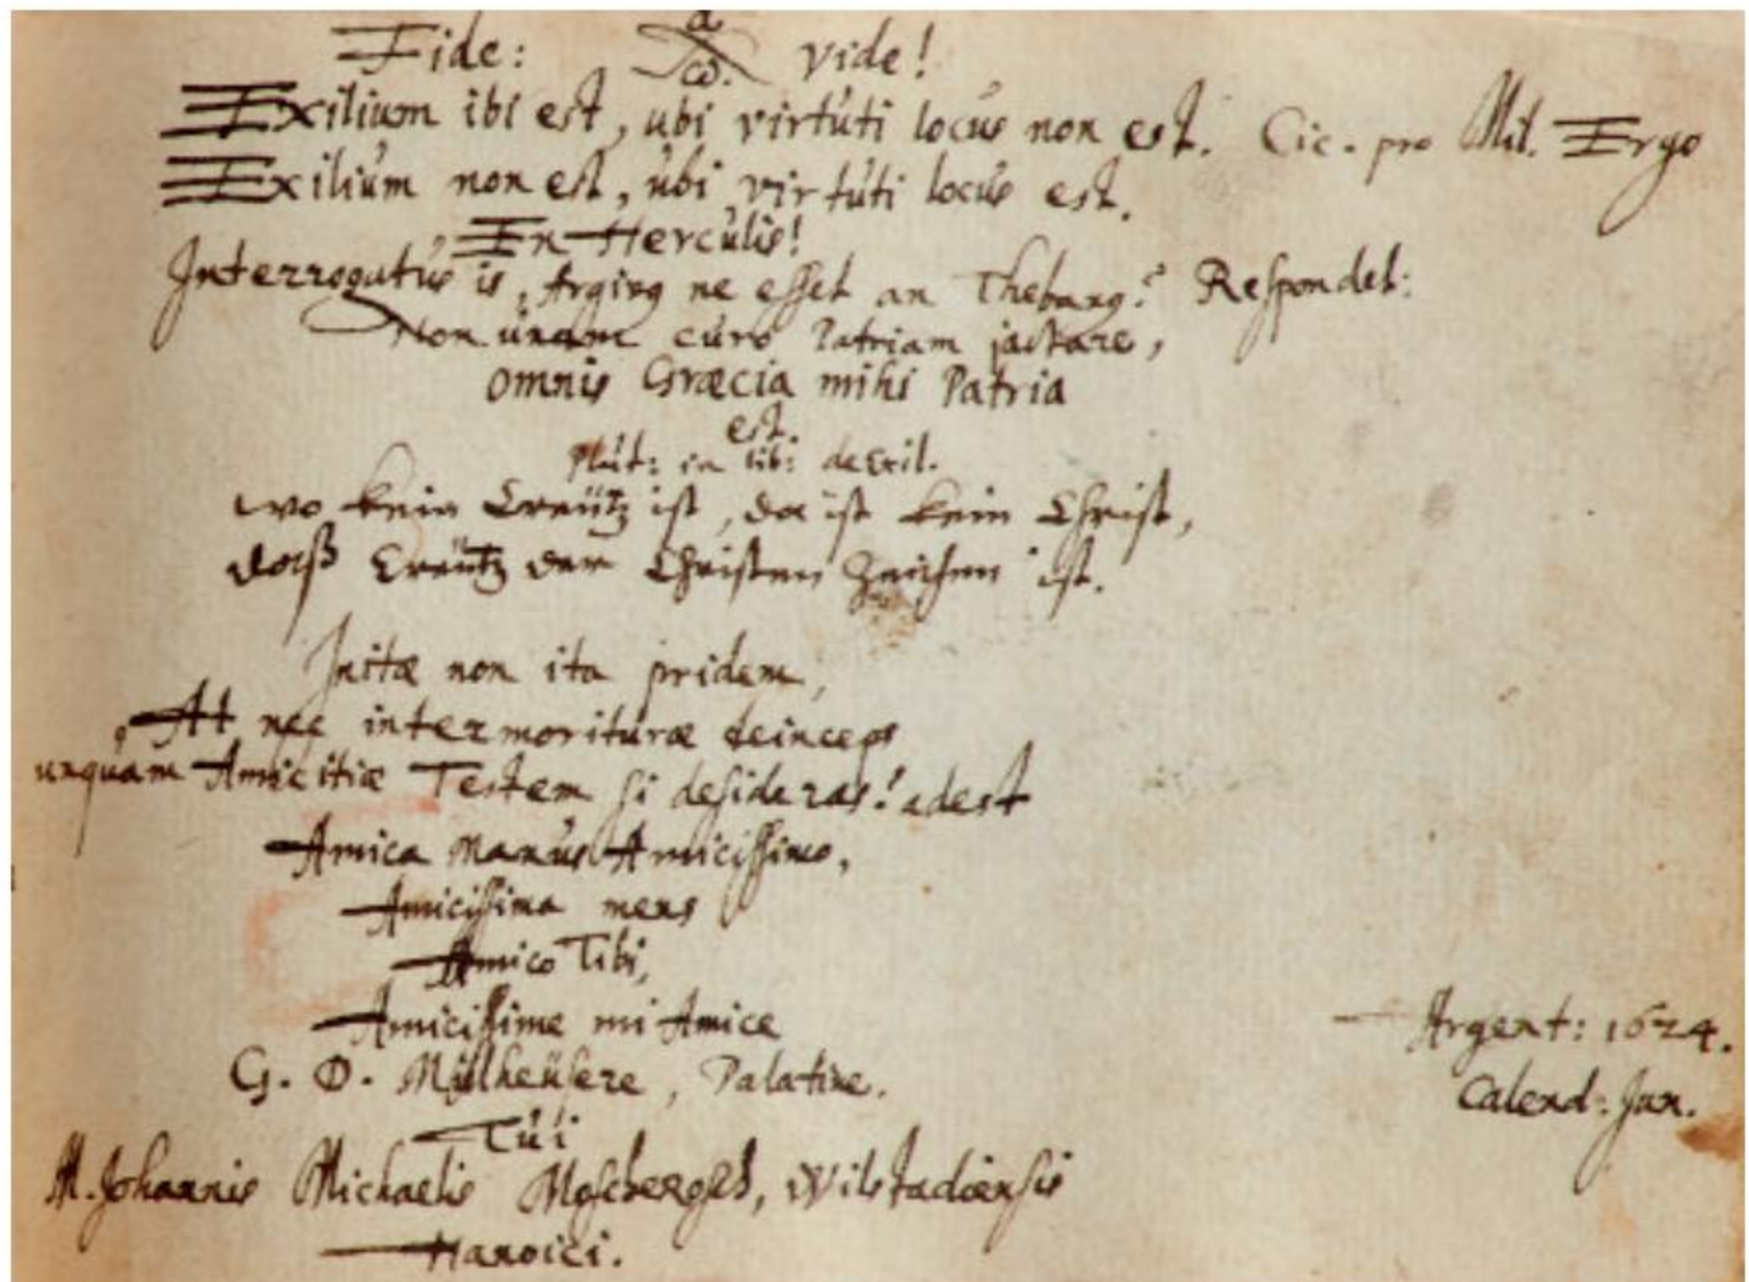 Fide: α ω. vide!
Exilium ibi est, ubi virtuti locus non est. Cic. pro Mil. Ergo
Exilium non est, ubi virtuti locus est.
En Herculis!
Interrogatus is, Argivꝰ ne esset an Thebanꝰ? Respondet:
Non unam curo Patriam jactare,
omnis Græcia mihi Patria
est.
Plut: in lib: de Exil.
wo kein Creütz ist, da ist kein Christ,
daß Creütz der Christen Zeichen ist.
Initæ non ita pridem,
At nec intermorituræ deinceps
unquam Amicitiæ Testem si desideras! adest
Amica Manus Amicissimo,
Amicissima mens
Amico Tibi,
Amicissime mi Amice
G. D. Müllheüsere, Palatine.
Argent: 1624.
Calend: Jan.
Tui
M. Johannis Michaelis Moscherosch, Wilstadiensis
Hanoici.